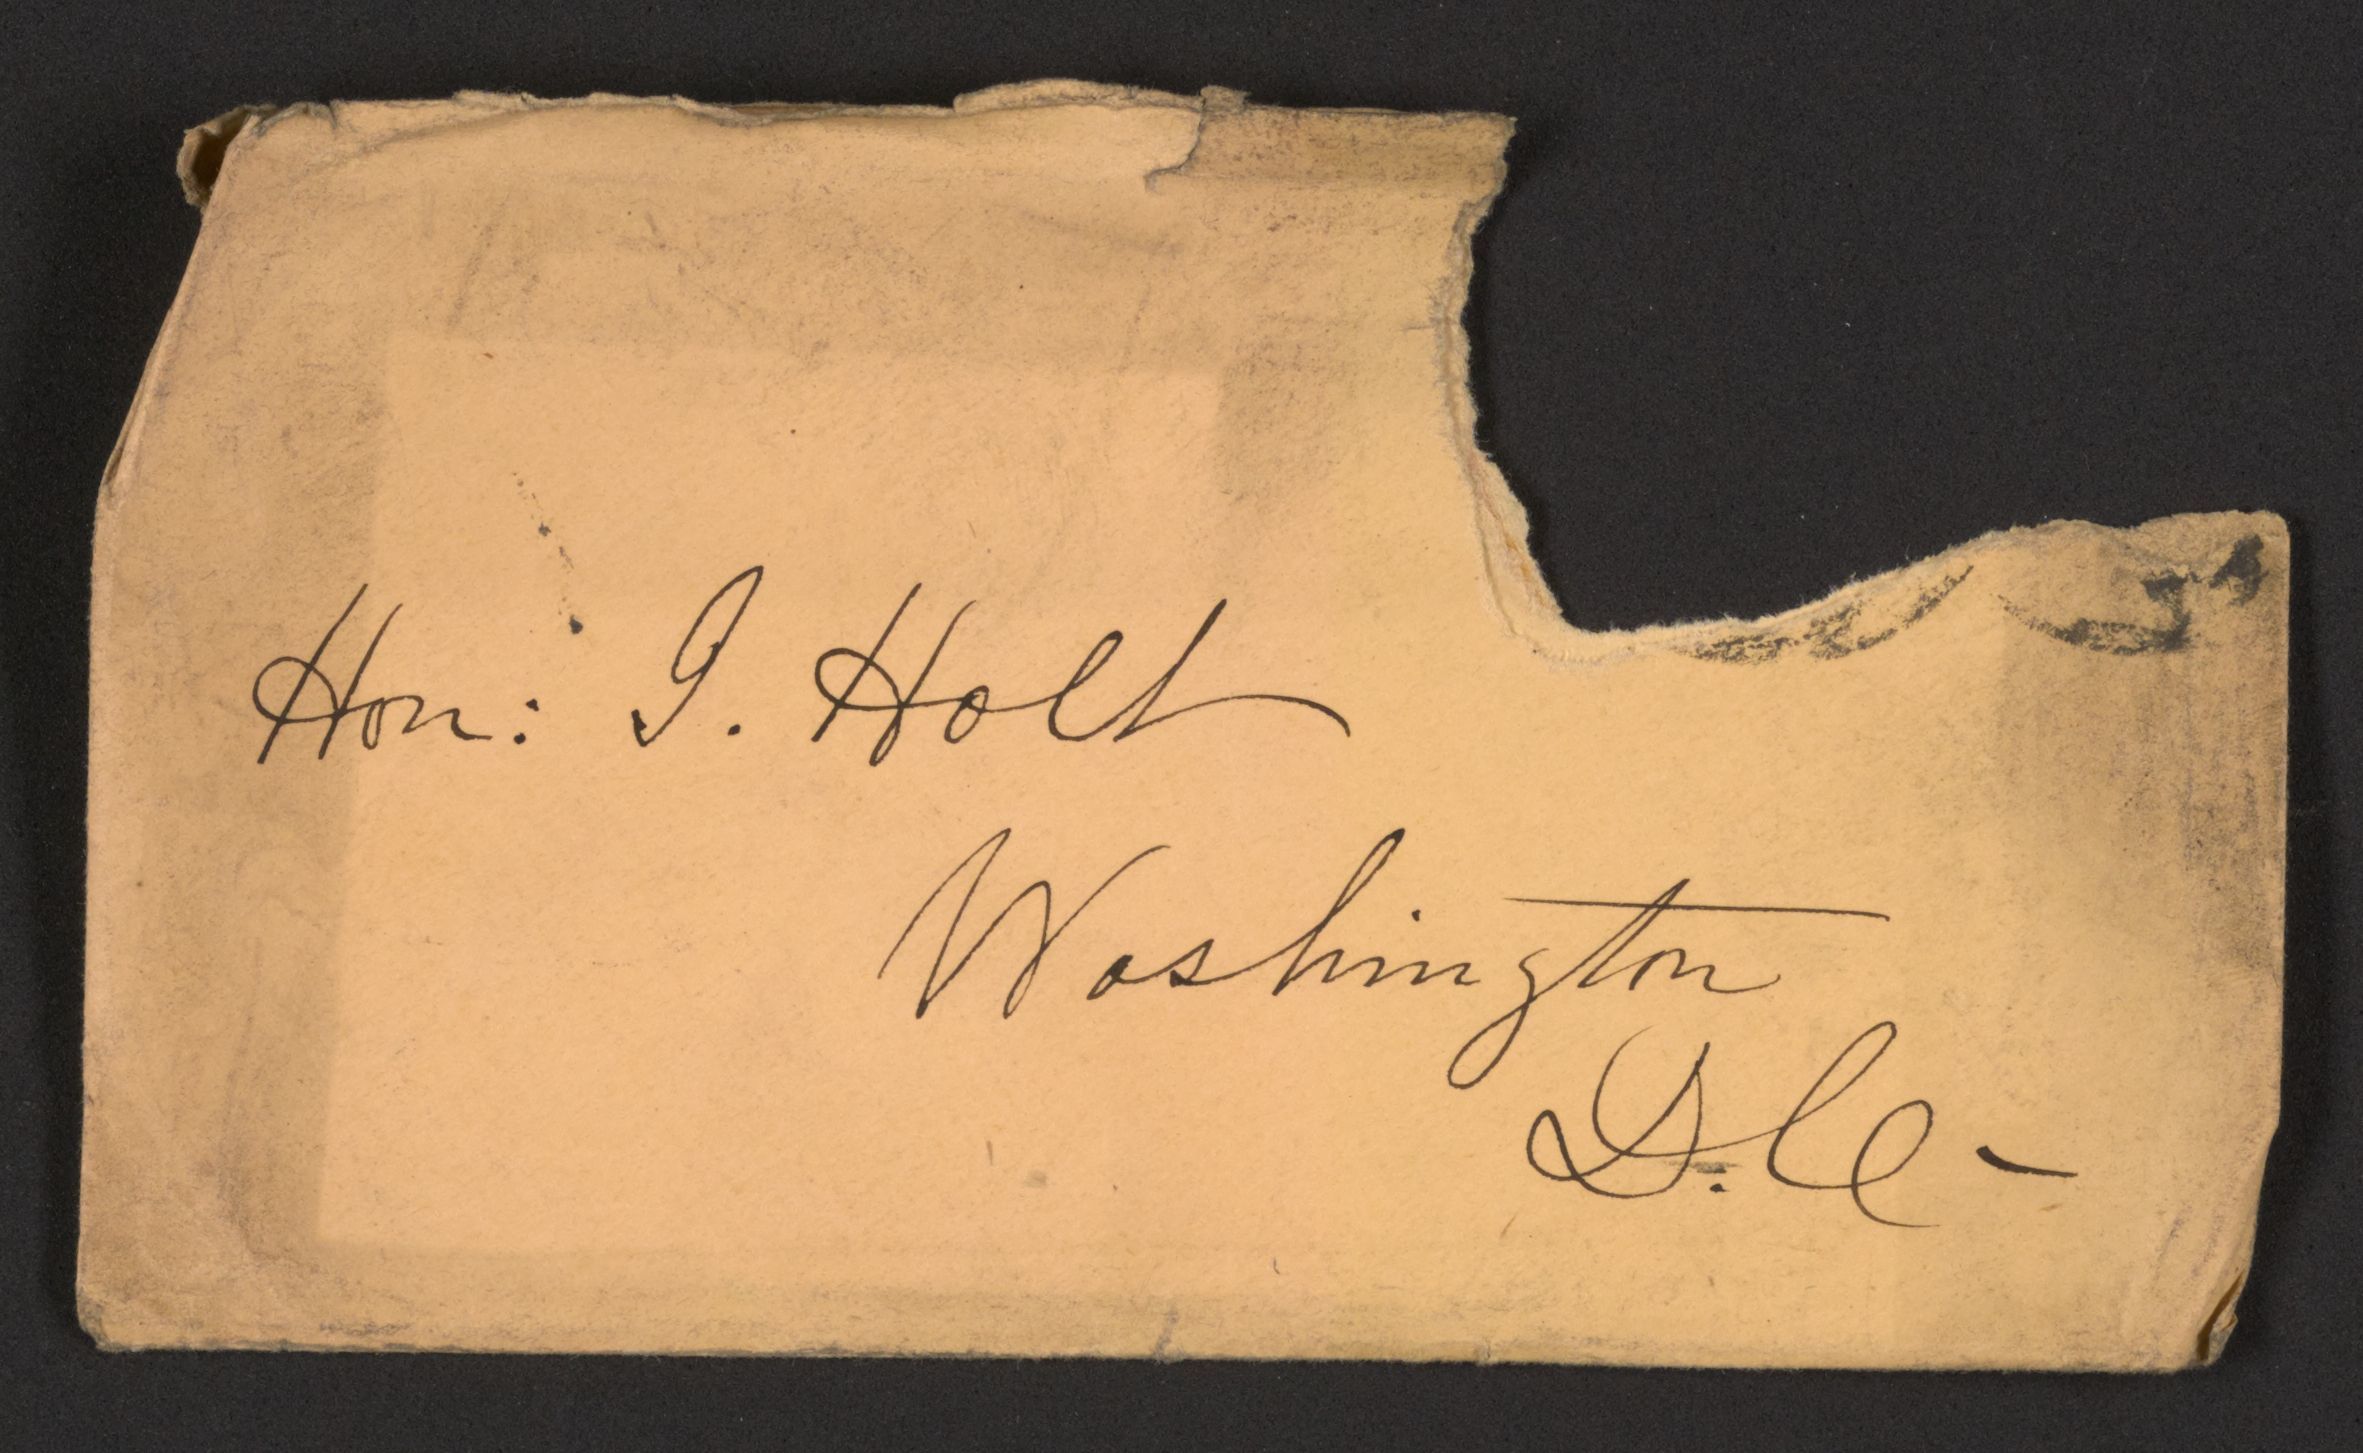 Hon: J. Holt
Washington
D.C-